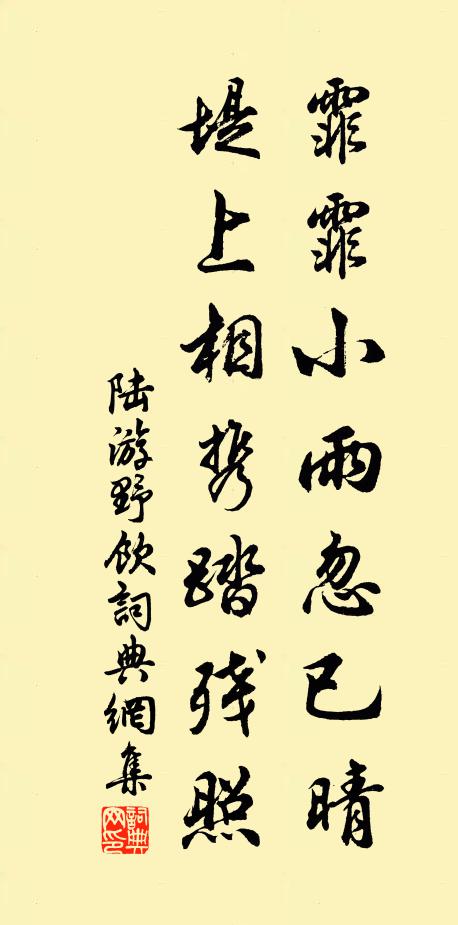 霏霏小雨忽已晴
堤上相携踏残照
陆游野飲詞典網集
詞典網印